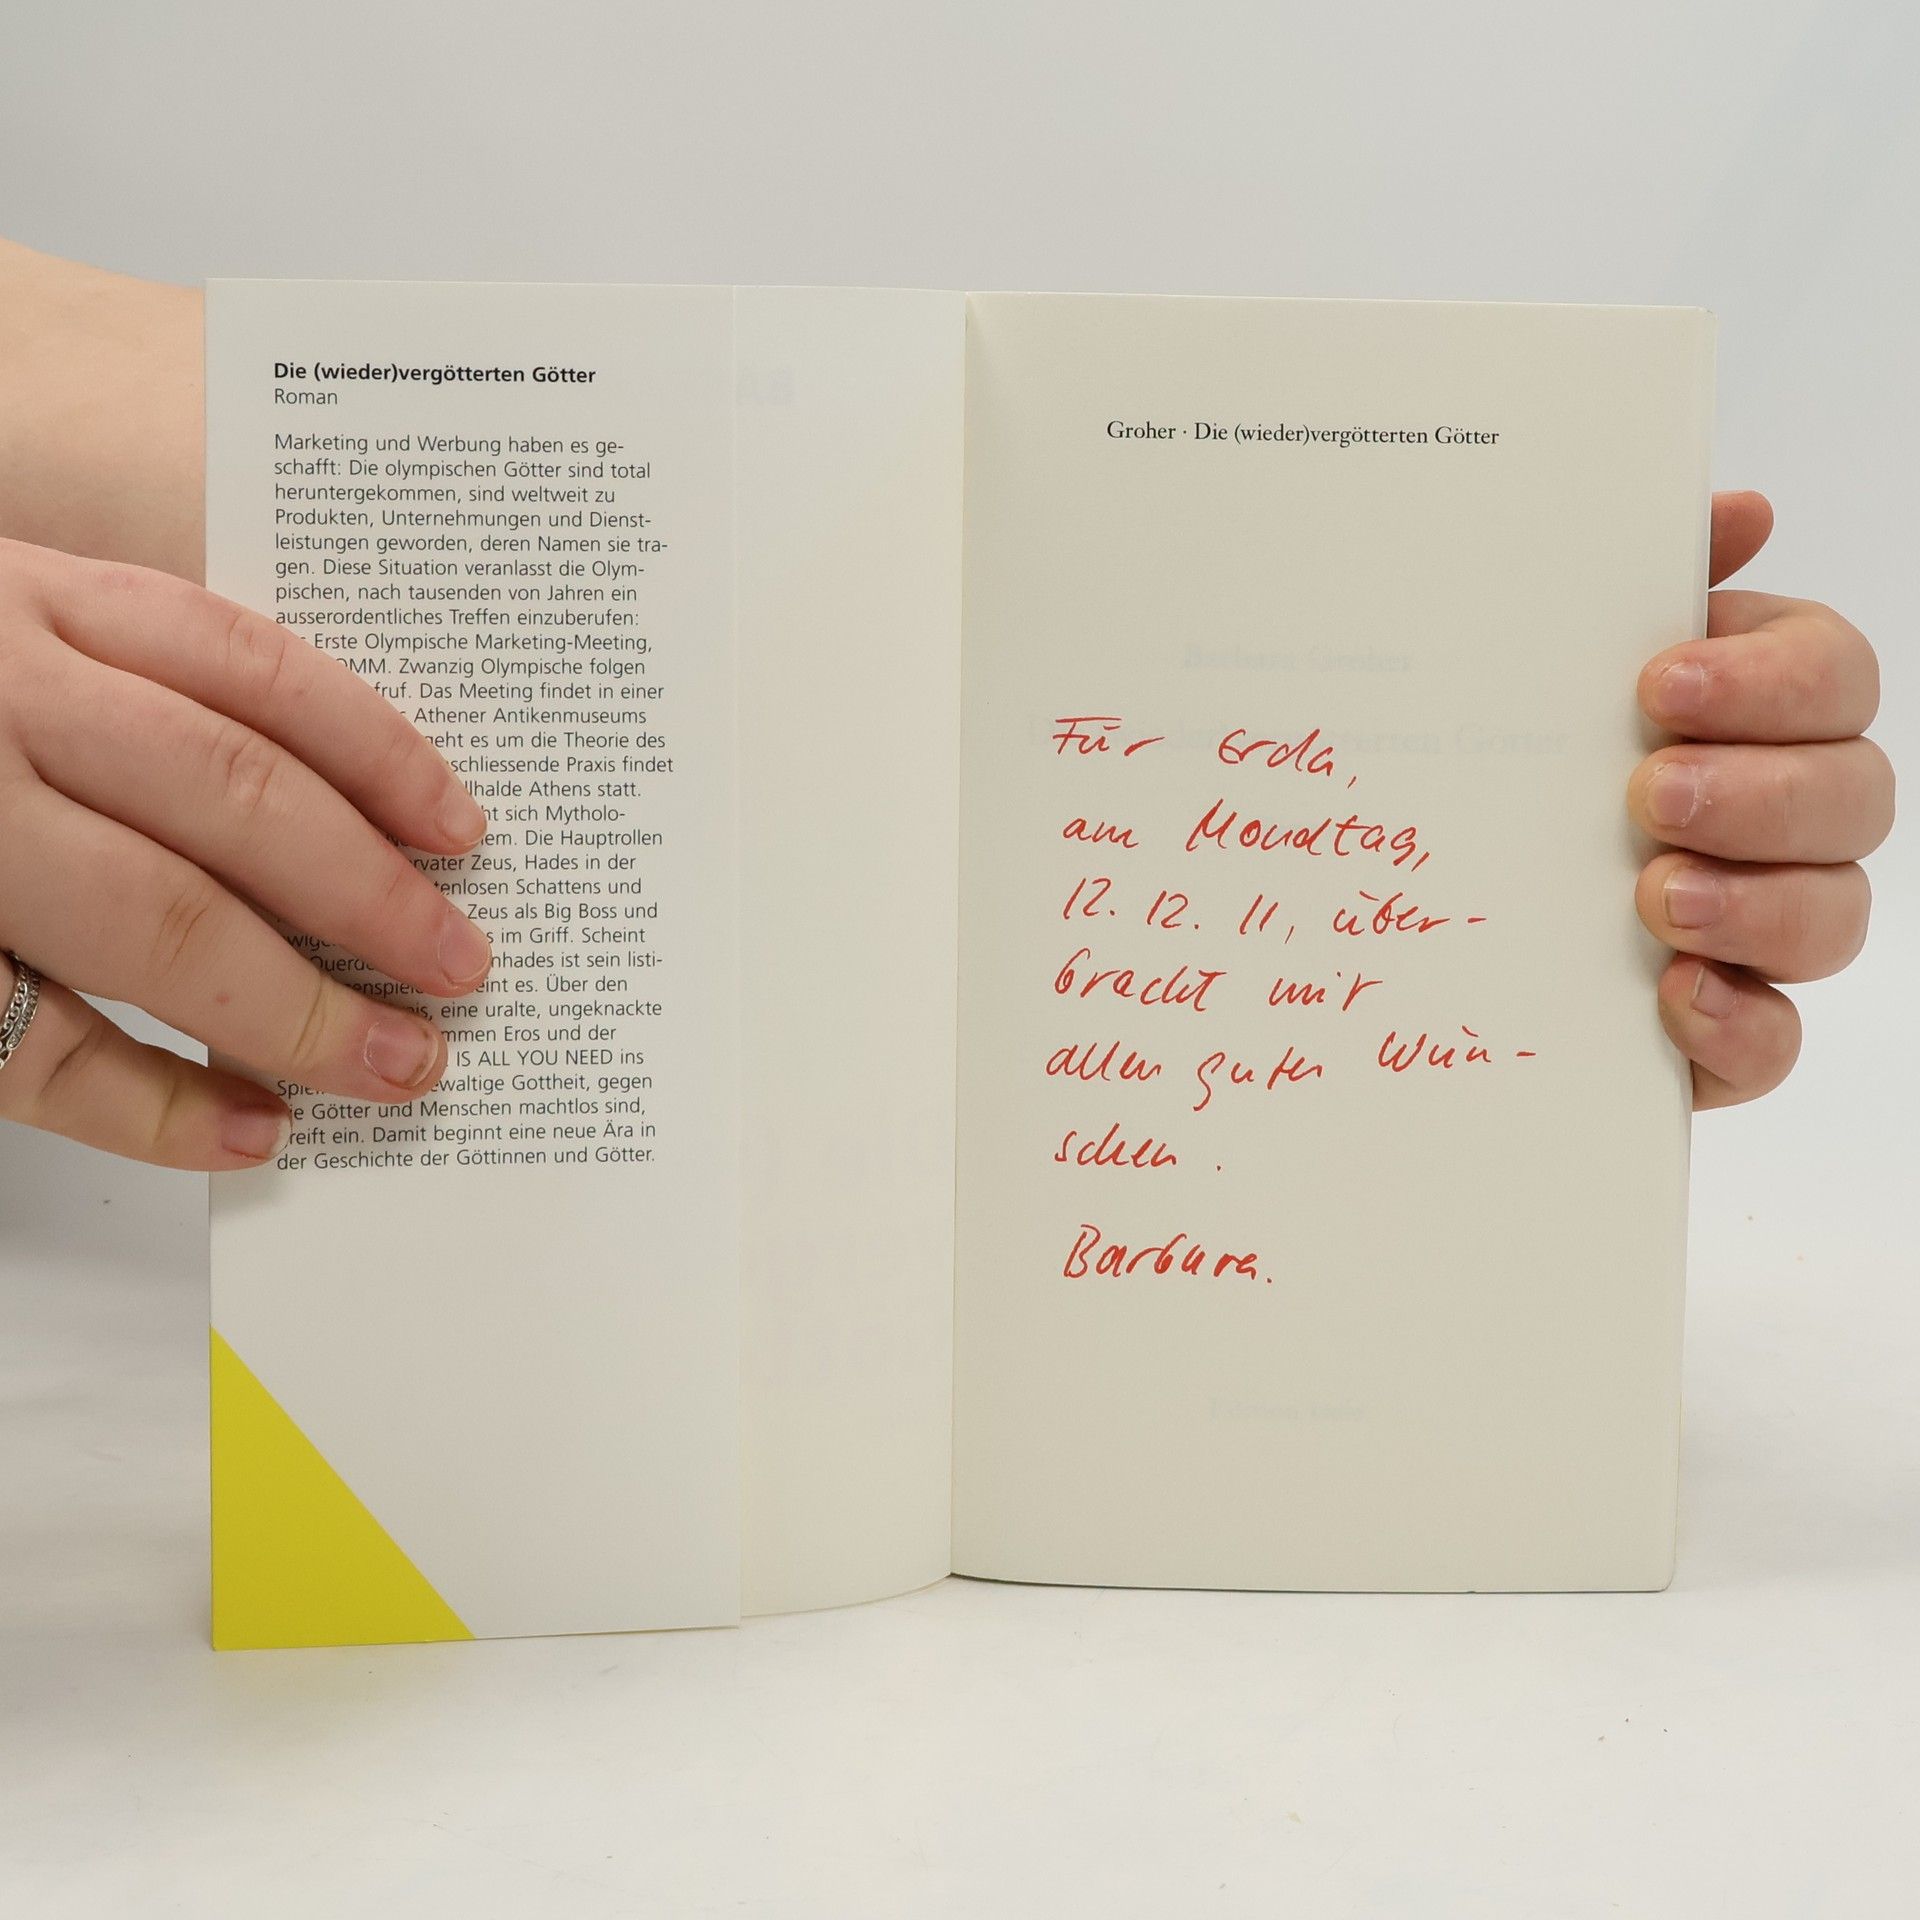 Die (wieder)vergötterten Götter
Roman
Marketing und Werbung haben es ge-
schafft: Die olympischen Götter sind total
heruntergekommen, sind weltweit zu
Produkten, Unternehmungen und Dienst-
leistungen geworden, deren Namen sie tra-
gen. Diese Situation veranlasst die Olym-
pischen, nach tausenden von Jahren ein
ausserordentliches Treffen einzuberufen:
Erste Olympische Marketing-Meeting,
OMM. Zwanzig Olympische folgen
fruf. Das Meeting findet in einer
Athener Antikenmuseums
geht es um die Theorie des
schliessende Praxis findet
llhalde Athens statt.
ht sich Mytholo-
em. Die Hauptrollen
rvater Zeus, Hades in der
tenlosen Schattens und
Zeus als Big Boss und
s im Griff. Scheint
nhades ist sein listi-
eint es. Über den
is, eine uralte, ungeknackte
mmen Eros und der
IS ALL YOU NEED ins
ewaltige Gottheit, gegen
ie Götter und Menschen machtlos sind,
reift ein. Damit beginnt eine neue Ära in
der Geschichte der Göttinnen und Götter.
Groher · Die (wieder)vergötterten Götter
Für Erda,
am Mondtag,
12. 12. 11, über-
bracht mit
allen guten Wün-
schen.
Barbara.